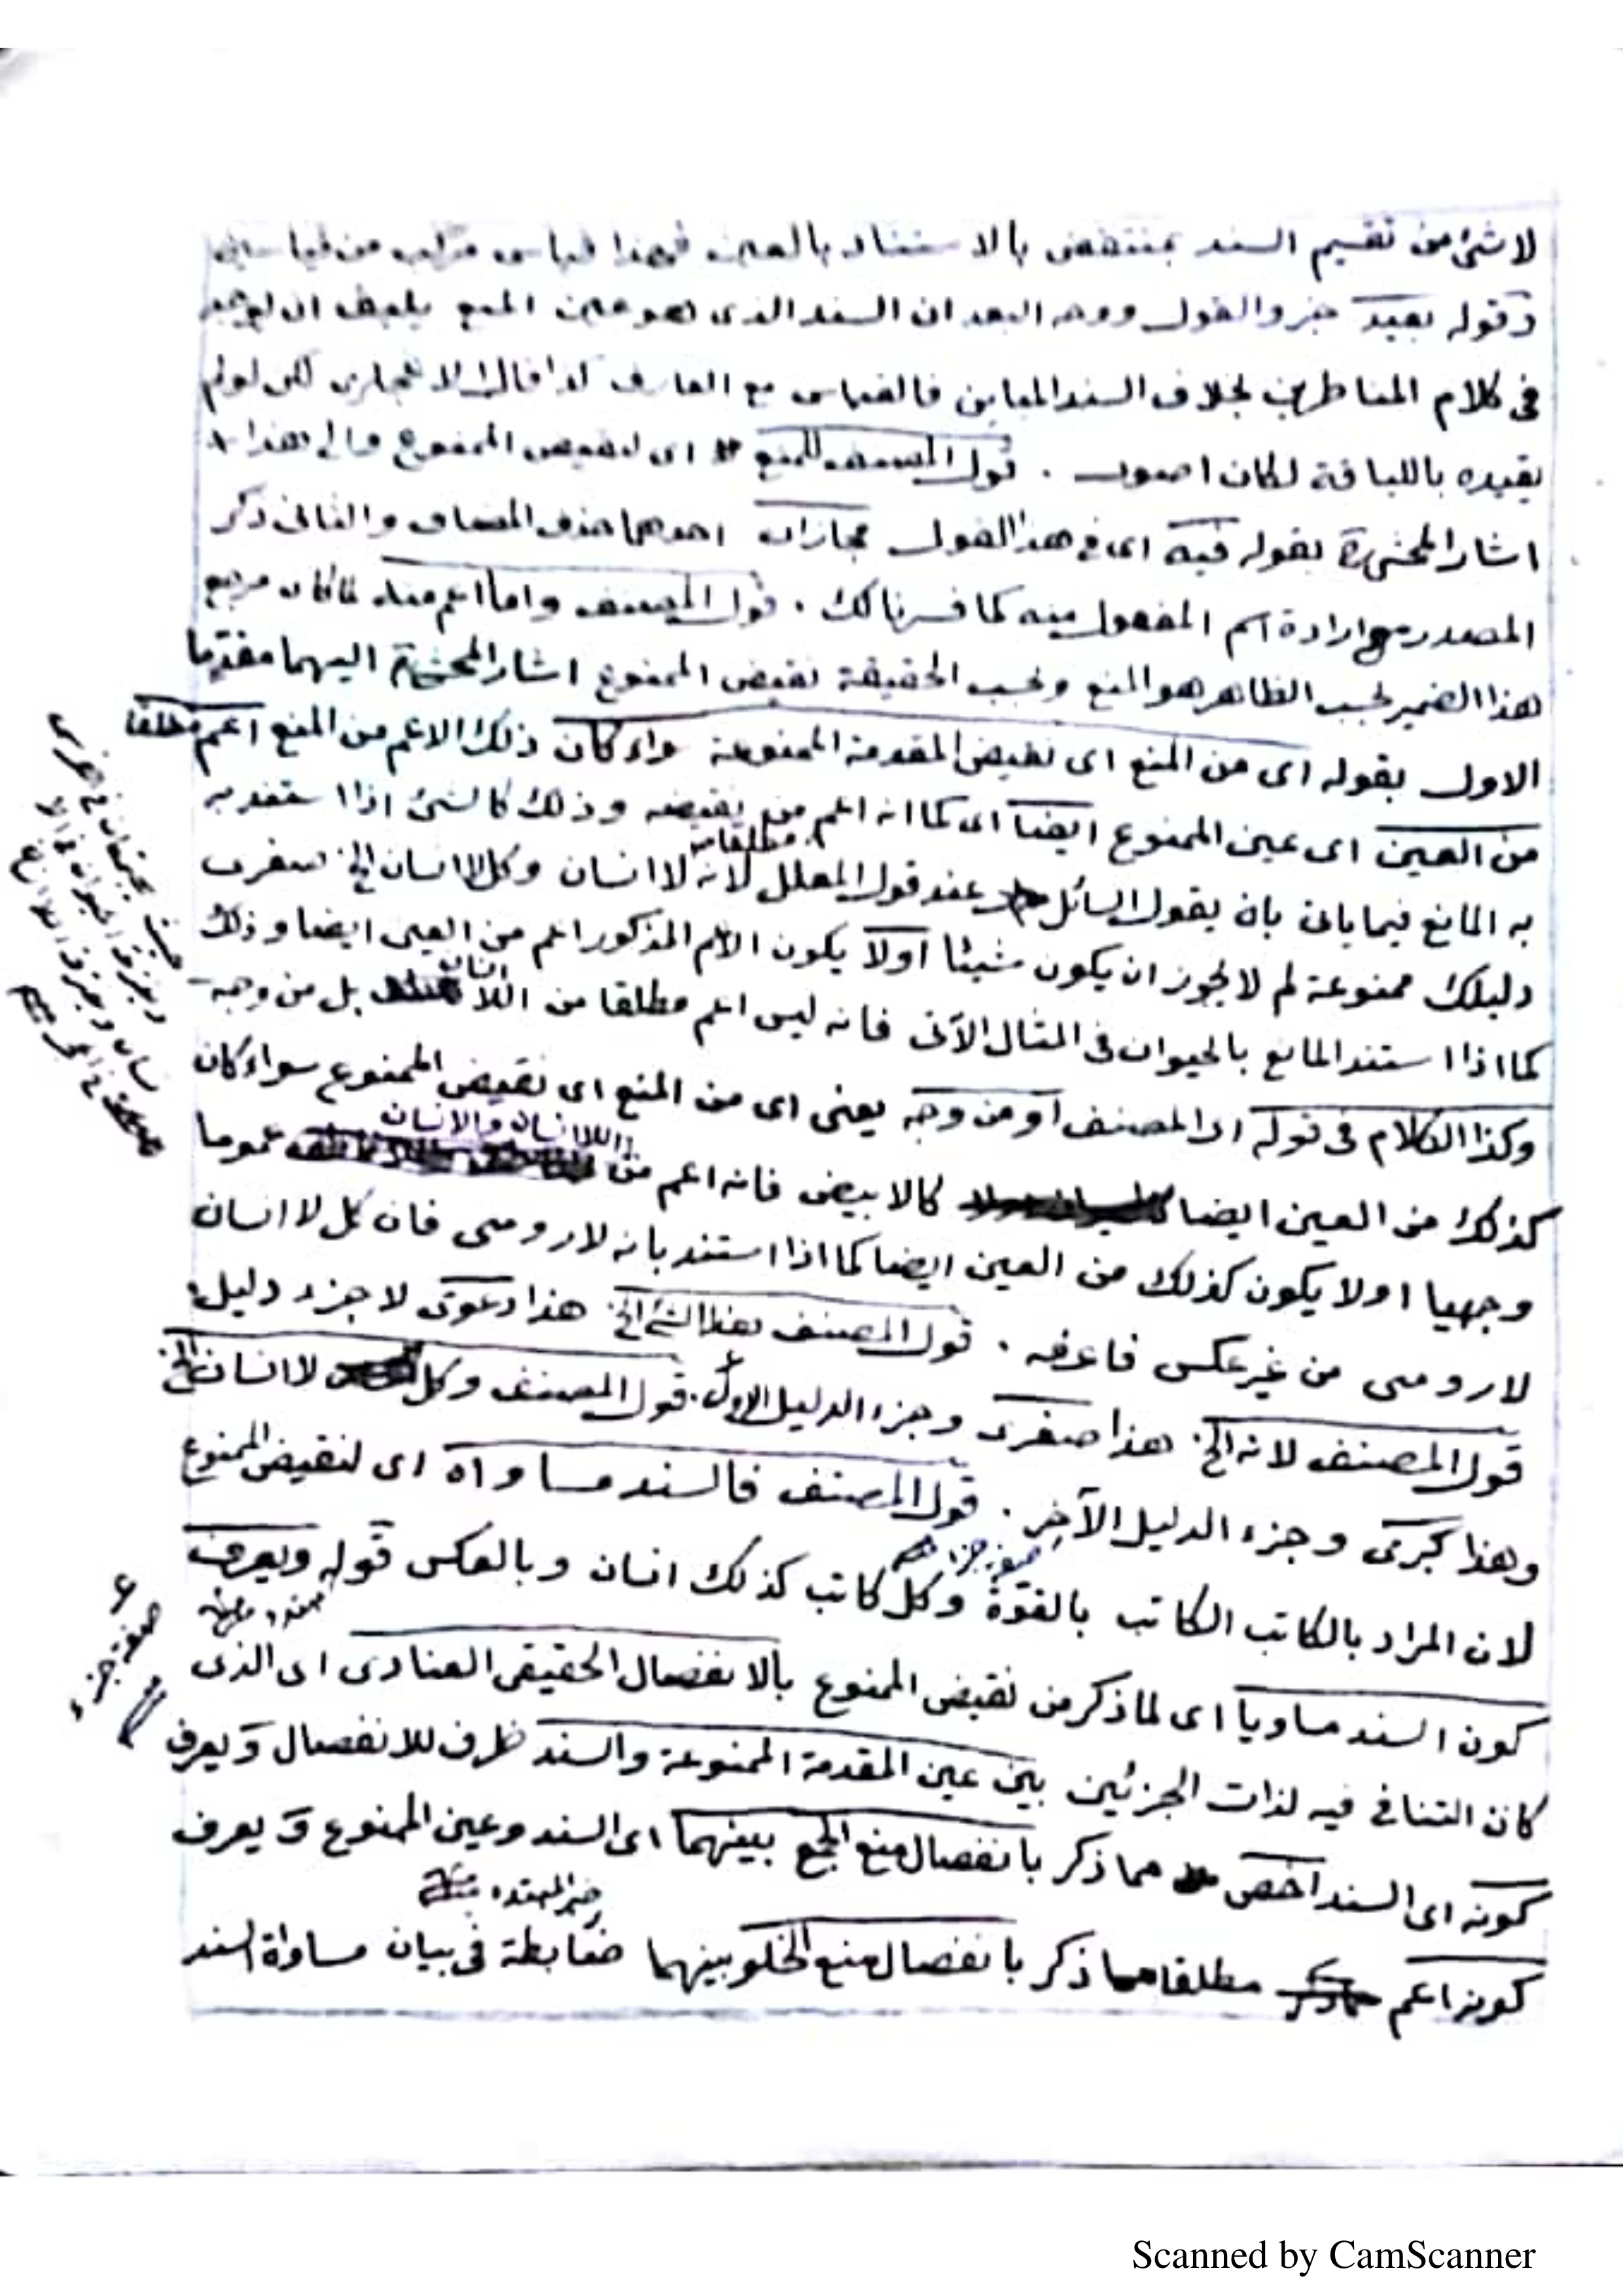 لا شئ من تقسيم السند بمنتقض بالاستناد بالعين فهذا قياس مركب من قياسين
وقوله بعيد خبر والقول ووجه البعد ان السند الذى هو عين المنع
فى كلام المناظرين بخلاف السند المباين فالقياس مع الفارق لكن لو لم
يقيده باللياقة لكان اصوب . قول المصنف للمنع اى لنقيض الممنوع والى هذا
اشار المحشى بقوله فيه اى فى هذا القول مجازان احدهما حذف المضاف والثانى ذكر
المصدر مع ارادة اسم المفعول منه كما فسرنا لك . قول المصنف واما اعم منه لما كان مرجع
هذا الضمير بحسب الظاهر هو المنع وبحسب الحقيقة نقيض الممنوع اشار المحشى اليهما مقدما
الاول بقوله اى من المنع اى نقيض المقدمة الممنوعة سواء كان ذلك الاعم من المنع اعم مطلقا
من العين اى عين الممنوع ايضا اى كما انه اعم من نقيضه وذلك كالشئ اذا استند به
مطلقا
به المانع فيما ياتى بان يقول السائل عند قول المعلل لانه لا انسان وكل لا انسان الخ صغرى
دليلك ممنوعة لم لا يجوز ان يكون شيئا اولا يكون الاعم المذكور اعم من العين ايضا وذلك
كما اذا استند المانع بالحيوان فى المثال الآتى فانه ليس اعم مطلقا من اللا انسان بل من وجه
وكذا الكلام فى قوله اى المصنف او من وجه يعنى اى من المنع اى نقيض الممنوع سواء كان
اللا انسان والانسان
كذلك من العين ايضا كالابيض فانه اعم من عموما
وجهيا اولا يكون كذلك من العين ايضا كما اذا استند بانه لا رومى فان كل لا انسان
لا رومى من غير عكس فاعرفه . قول المصنف هذا الشئ الخ هذا دعوى لا جزء دليل
قول المصنف لانه الخ هذا صغرى وجزء الدليل الاول . قول المصنف وكل لا انسان الخ
وهذا كبرى وجزء الدليل الآخر . قول المصنف فالسند مساواه اى لنقيض الممنوع
لان المراد بالكاتب الكاتب بالقوة وكل كاتب كذلك انسان وبالعكس قوله ويعرف
كون السند مساويا اى لما ذكر من نقيض الممنوع بالانفصال الحقيقى العنادى اى الذى
كان التنافى فيه لذات الجزئين بين عين المقدمة الممنوعة والسند ظرف للانفصال ويعرف
كونه اى السند اخص مما ذكر بانفصال منع الجمع بينهما اى السند وعين الممنوع ويعرف
خبر المبتدء
كونه اعم مطلقا مما ذكر بانفصال منع الخلو بينهما ضابطة فى بيان مساواة السند
صفة جزء
Scanned by CamScanner